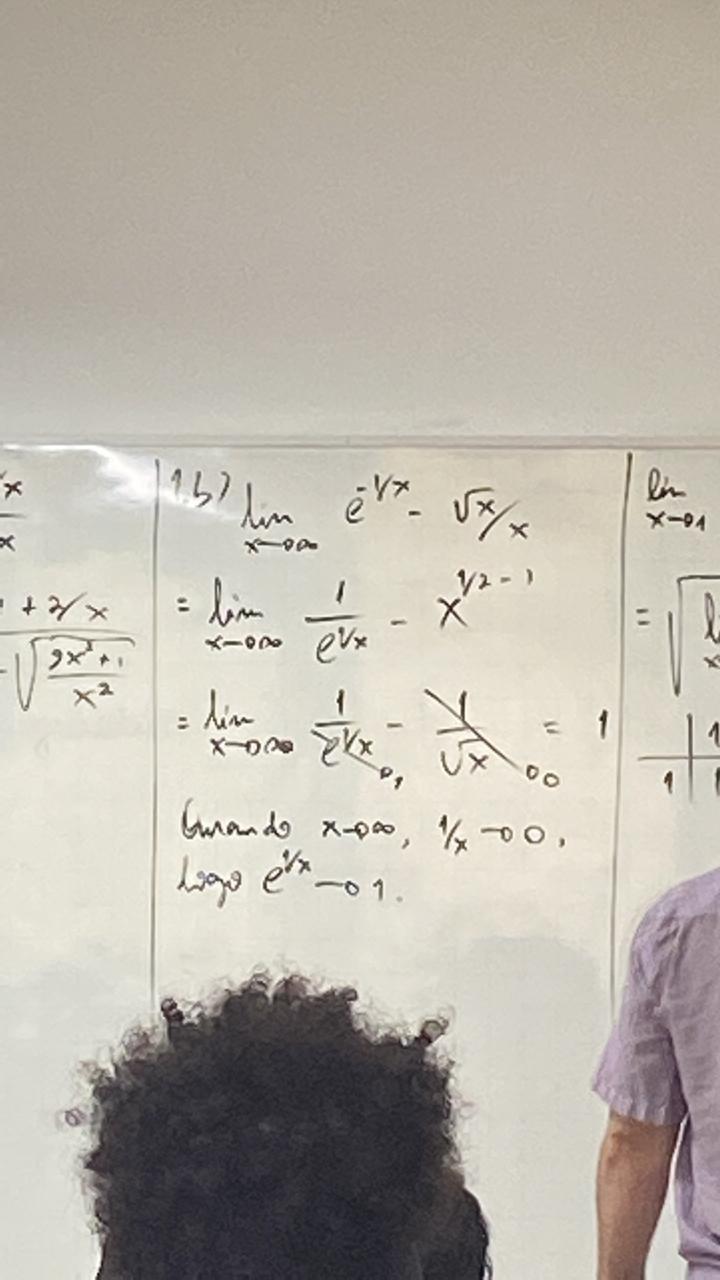 √x
x
+ 2/x
√(9x²+1 / x²)
1.b) lim x→∞ e^(-1/x) - √x/x
= lim x→∞ 1/e^(1/x) - x^(1/2 - 1)
= lim x→∞ 1/e^(1/x) →1 - 1/√x →0 = 1
Quando x→∞, 1/x →0,
logo e^(1/x) → 1.
lim x→1
= √ lim x
1
1 1